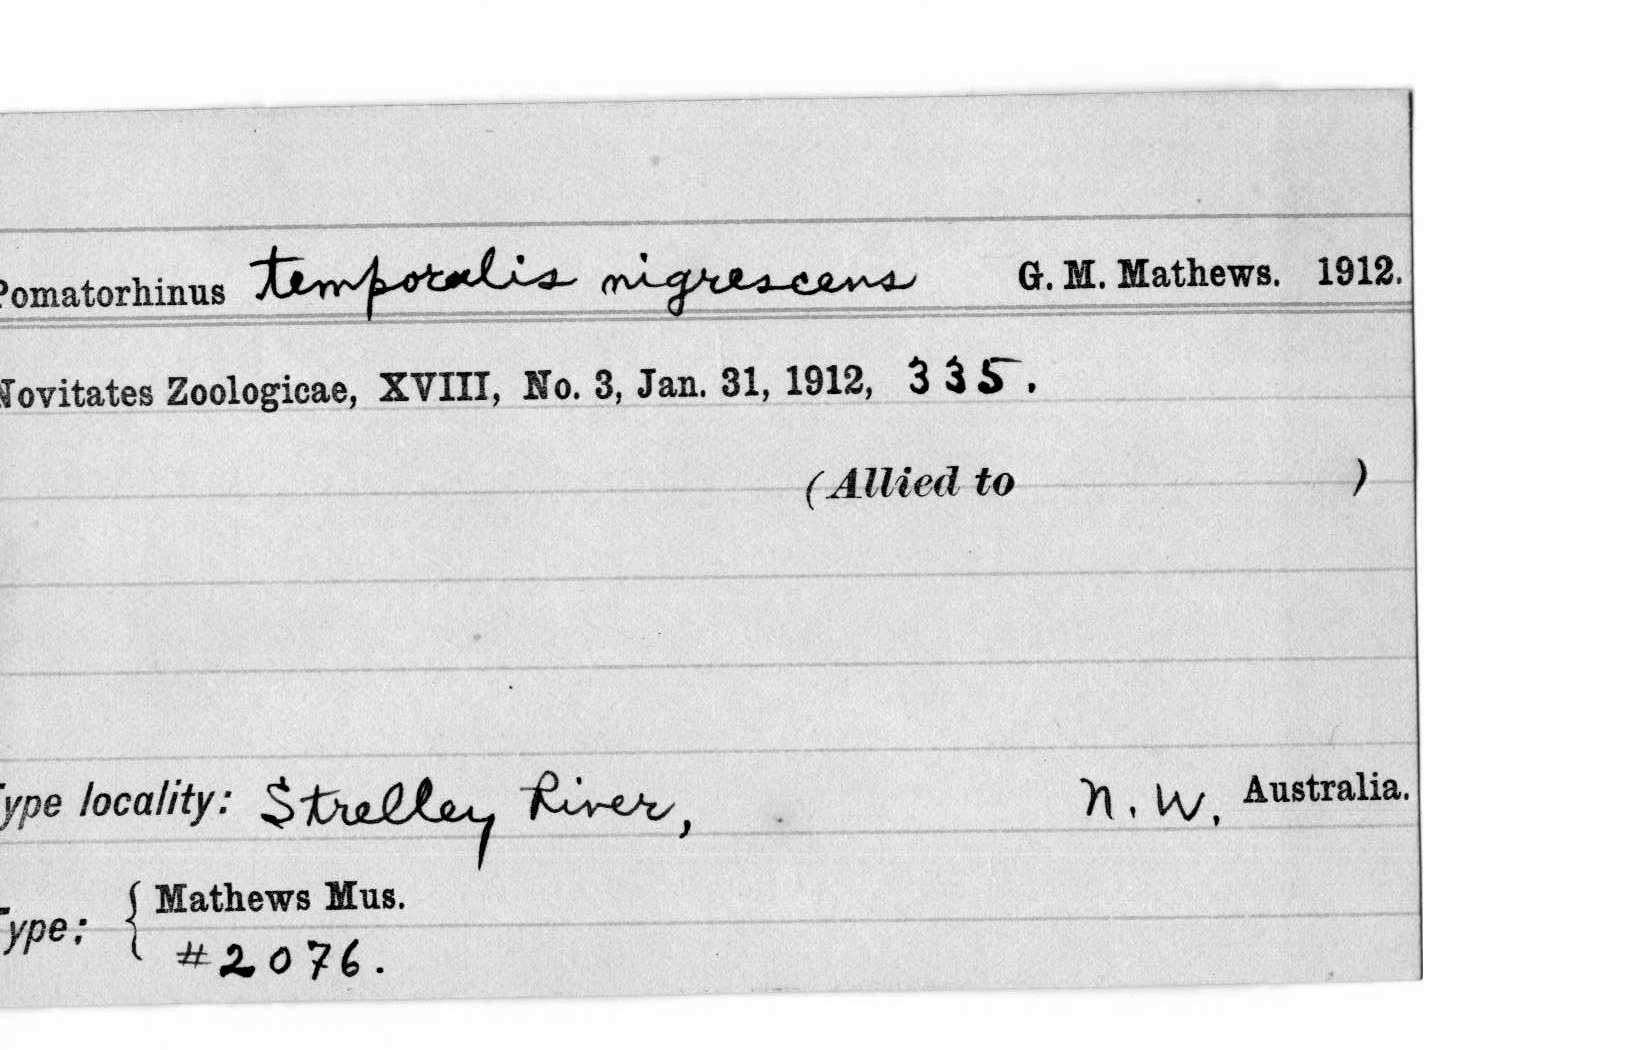 Pomatorhinus temporalis nigrescens G. M. Mathews. 1912.
Novitates Zoologicae, XVIII, No. 3, Jan. 31, 1912, 335.
(Allied to )
Type locality: Strelley River, N. W. Australia.
Type: { Mathews Mus.
#2076.